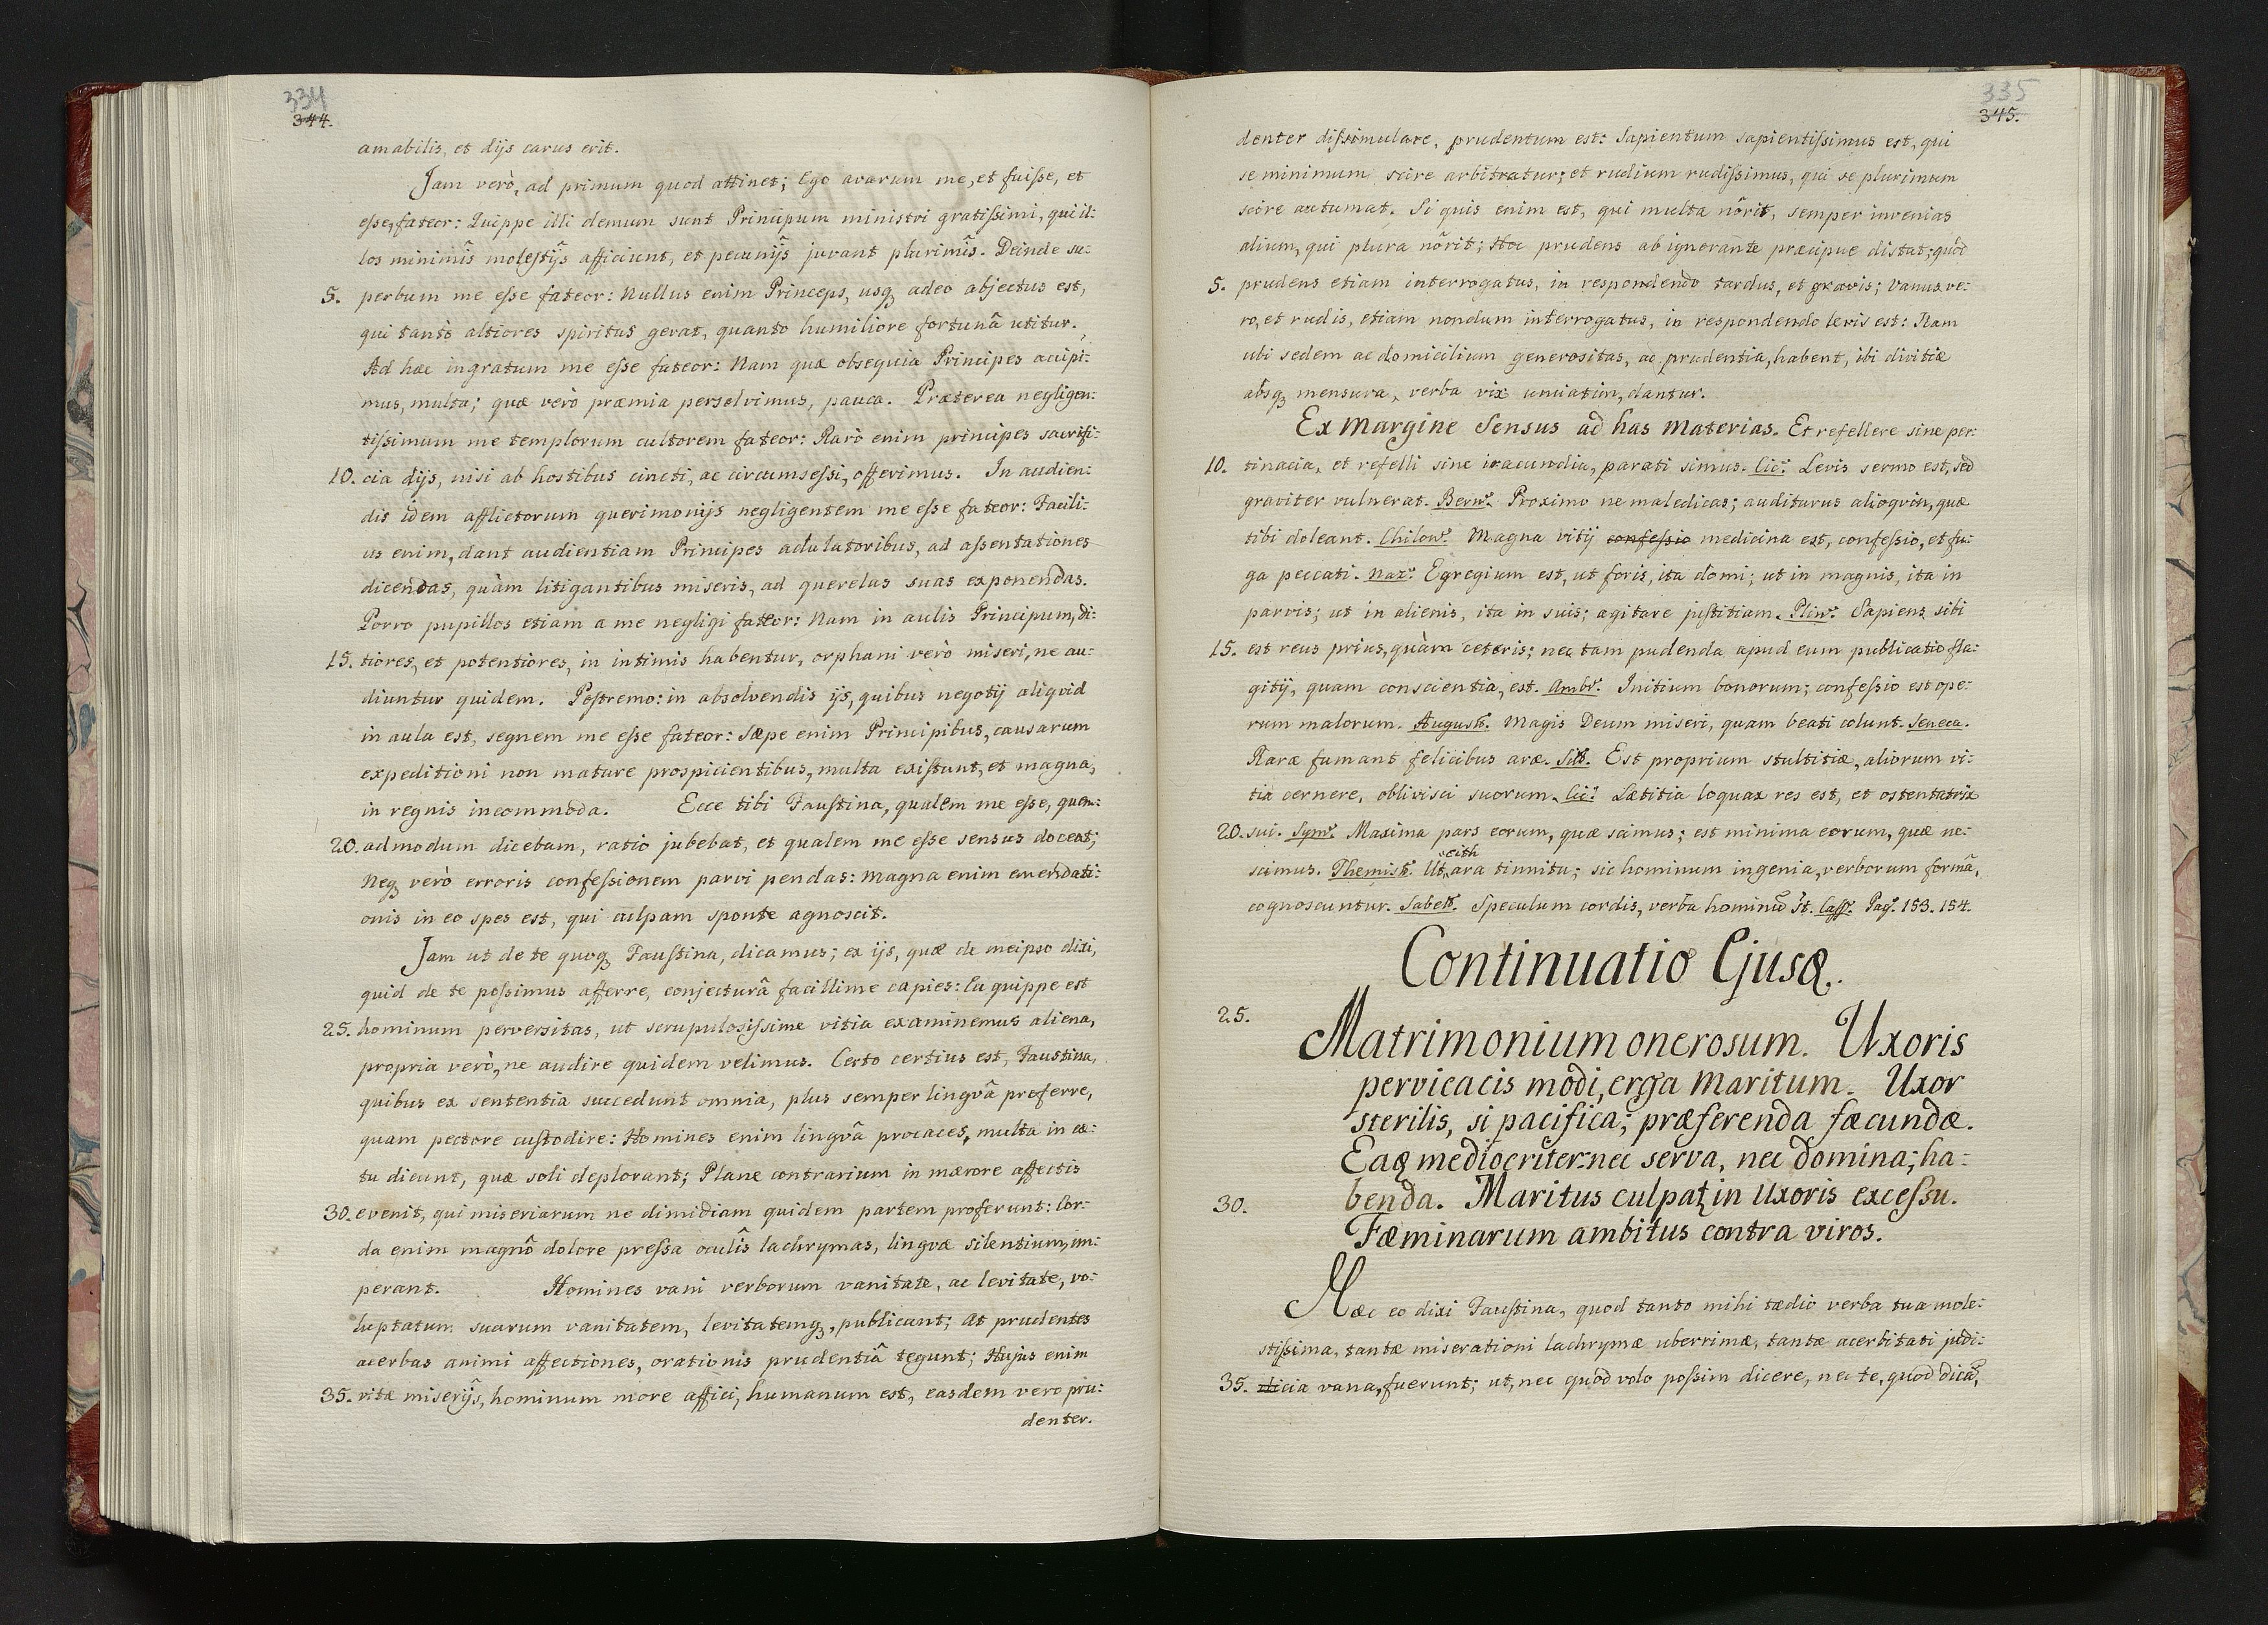 334
344.
amabilis, et dijs carus erit.
Jam verò, ad primum quod attinet; Ego avarum me, et fuiſse, et
eſse, fateor: Quippe illi demum sunt Principum ministri gratiſsimi, qui il:
los minimîs moleſtijs afficiunt, et pecunijs juvant plurimîs. Deinde su:
5. perbum me eſse fateor: Nullus enim Princeps, usq, adeo abjectus est,
qui tantò altiores spiritus gerat, quanto humiliore fortunâ utitur.
Ad hæc ingratum me eſse fateor: Nam quæ obsequia Principes accipi:
mus, multa; quæ verò præmia persolvimus, pauca. Præterea negligen:
tiſsimum me templorum cultorem fateor: Rarò enim principes sacrifi:
10. cia dijs, nisi ab hostibus cincti, ac circumseſsi, offerimus. In audien:
dis idem afflictorum querimonijs negligentem me eſse fateor: Facili:
us enim, dant audientiam Principes adulatoribus, ad aſsentationes
dicendas, quàm litigantibus miseris, ad querelas suas exponendas.
Porro pupillos etiam a me negligi fateor: Nam in aulis Principum, di:
15. tiores, et potentiores, in intimis habentur, orphani verò miseri, ne au:
diuntur quidem. Poſtremo: in absolvendis ijs, quibus negotij aliqvid
in aula est, segnem me eſse fateor: Sæpe enim Principibus, causarum
expeditioni non mature prospicientibus, multa exiſtunt, et magna,
in regnis incommoda. Ecce tibi Fauſtina, qualem me eſse, quem:
20. admodum dicebam, ratio jubebat, et qualem me eſse sensus docent;
Neq, verò erroris confeſsionem parvi pendas: Magna enim emendati:
onis in eo spes est, qui culpam sponte agnoscit.
Jam ut de te quoq, Fauſtina, dicamus; ex ijs, quæ de meipso dixi,
quid de te poſsimus afferre, conjecturâ facillime capies: Ea quippe est
25. hominum perversitas, ut scrupulosiſsime vitia examinemus aliena,
propria verò, ne audire quidem velimus. Certo certius est, Faustina,
quibus ex sententia succedunt omnia, plus semper lingvâ proferre,
quam pectore cuſtodire: Homines enim lingvâ procaces, multa in cæ:
tu dicunt, quæ soli deplorant; Plane contrarium in mærore affectis
30. evenit, qui miseriarum ne dimidiam quidem partem proferunt: Cor:
da enim magnô dolore preſsa oculîs lachrymas, lingvæ silentium, im:
perant. Homines vani verborum vanitate, ac levitate, vo:
luptatum suarum vanitatem, levitatemq, publicant; At prudentes
acerbas animi affectiones, orationis prudentiâ tegunt; Hujus enim
35. vitæ miserijs, hominum more affici, humanum est, easdem vero pru:
denter.
335
345.
denter diſsimulare, prudentum est: Sapientum sapientiſsimus est, qui
se minimum scire arbitratur; et rudium rudiſsimus, qui se plurimum
scire autumat. Si quis enim est, qui multa nôrit, semper invenias
alium, qui plura nôrit; Hoc prudens ab ignorante præcipue distat; quòd
5. prudens etiam interrogatus, in respondendo tardus, et gravis; Vanus ve:
ro, et rudis, etiam nondum interrogatus, in respondendo levis est: Nam
ubi sedem ac domicilium generositas, ac prudentia, habent, ibi divitiæ
absq, mensura, verba vix unciatim, dantur.
Ex Margine Sensus ad has Materias. Et refellere sine per:
10. tinacia, et refelli sine iracundia, parati simus. Cic: Levis sermo est, sed
graviter vulnerat. Bern: Proximo ne maledicas; auditurus alioqvin, quæ
tibi doleant. Chilon: Magna vitij confeſsio medicina est, confeſsio, et fu:
ga peccati. Naz: Egregium est, ut foris, ita domi; ut in magnis, ita in
parvis; ut in alienis, ita in suis; agitare juſtitiam. Plin: Sapiens sibi
15. est reus prius, quàm ceteris; nec tam pudenda apud eum publicatio fla:
gitij, quam conscientia, est. Ambr: Initium bonorum; confeſsio est ope:
rum malorum. August: Magis Deum miseri, quam beati colunt. Seneca.
Raræ fumant felicibus aræ. Sil: Est proprium stultitiæ, aliorum vi:
tia cernere, oblivisci suorum. Cic: Lætitia loquax res est, et ostentatrix
20. sui. Sym: Maxima pars eorum, quæ scimus; est minima eorum, quæ ne:
scimus. Themist: Ut cithara tinnitu; sic hominum ingenia, verborum formâ,
cognoscuntur. Sabell: Speculum cordis, verba hominũ st. Caſs: Pag: 153. 154.
Continuatio Ejusq.
25.
Matrimonium onerosum. Uxoris
pervicacis modi, erga Maritum. Uxor
sterilis, si pacifica; præferenda fæcundæ.
Eaq mediocriter: nec serva, nec domina; ha:
30. benda. Maritus culpat in Uxoris exceſsu.
Fæminarum ambitus contra viros.
Hæc eo dixi Fauſtina, quod tanto mihi tædio verba tua mole:
ſtiſsima, tantæ miserationi lachrymæ uberrimæ, tantæ acerbitati judi:
35. cia vana, fuerunt; ut, nec quòd volo poſsim dicere, nec te, quod dicã,